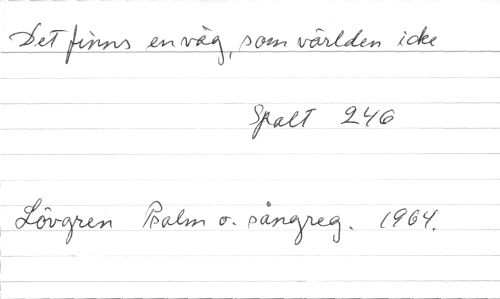 Det finns en väg, som världen icke
Spalt 246
Lövgren Psalm o. sångreg. 1964.